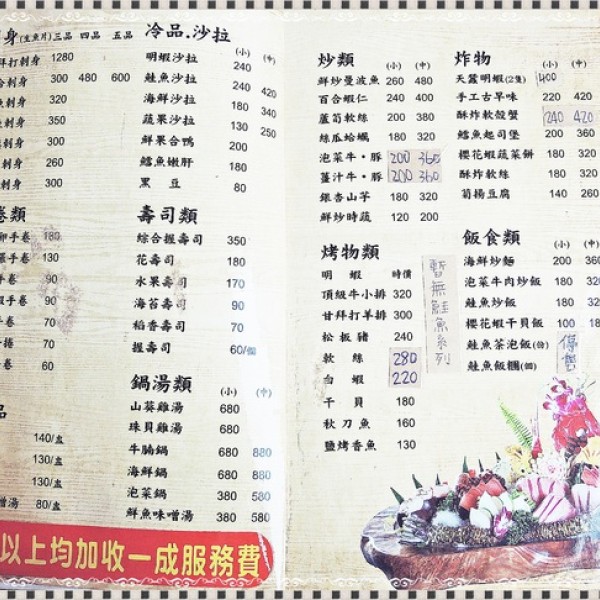 身(生魚片) 三品 四品 五品
拜打刺身 1280
合刺身 300 480 600
刺身 320
刺身 350
刺身 300
刺身 260
刺身 300
卷類
卵手卷 180
手卷 130
手卷 90
手卷 90
手卷 70
手捲 70
手卷 60
品
140/盅
130/盅
130/盅
噌湯 80/盅
冷品.沙拉 (小) (中)
明蝦沙拉 240
鮭魚沙拉 240 420
海鮮沙拉 180 340
蔬果沙拉 130 250
鮮果合鴨 200
鱈魚嫩肝 180
黑豆 80
壽司類
綜合握壽司 350
花壽司 180
水果壽司 170
海苔壽司 90
稻香壽司 70
握壽司 60/個
鍋湯類 (小) (中)
山葵雞湯 680
珠貝雞湯 680
牛腩鍋 680 880
海鮮鍋 680 880
泡菜鍋 380 580
鮮魚味噌湯 380 580
以上均加收一成服務費
炒類 (小) (中)
鮮炒曼波魚 260 480
百合蝦仁 240 400
蘆筍軟絲 200 380
絲瓜蛤蠣 180 320
泡菜牛・豚 200 360
薑汁牛・豚 200 360
銀杏山芋 180 320
鮮炒時蔬 120 200
烤物類
明蝦 時價
頂級牛小排 320
甘拜打羊排 300
松板豬 240
軟絲 280
白蝦 220
干貝 180
秋刀魚 160
鹽烤香魚 130
暫無鮭魚系列
炸物 (小) (中)
天蠶明蝦(2隻) 400
手工古早味 220 420
酥炸軟殼蟹 240 420
鱈魚起司堡 200 360
櫻花蝦蔬菜餅 180 320
酥炸軟絲 180 320
筍揚豆腐 140 260
飯食類 (小) (中)
海鮮炒麵 200 360
泡菜牛肉炒飯 180 320
鮭魚炒飯 180 320
櫻花蝦干貝飯 100 18
鮭魚茶泡飯(份)
鮭魚飯糰(個)
停售